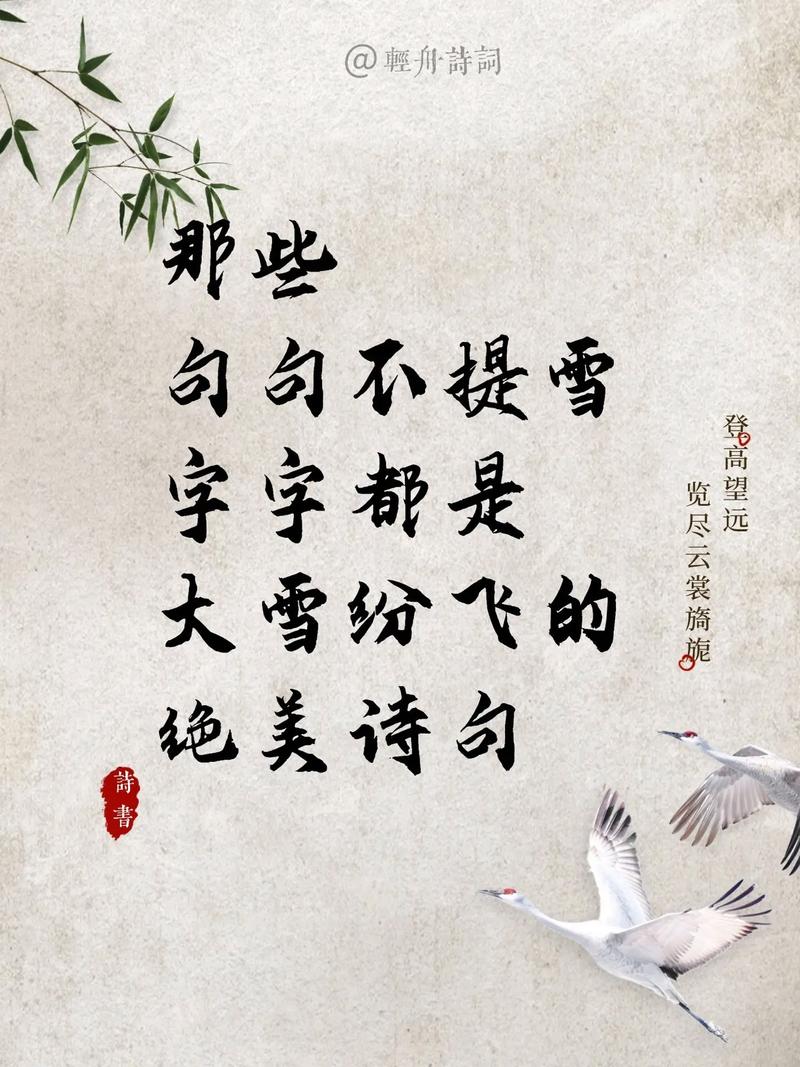 @輕舟詩詞
那些
句句不提雪
字字都是
大雪纷飞的
绝美诗句
登高望远
览尽云裳旖旎
詩書